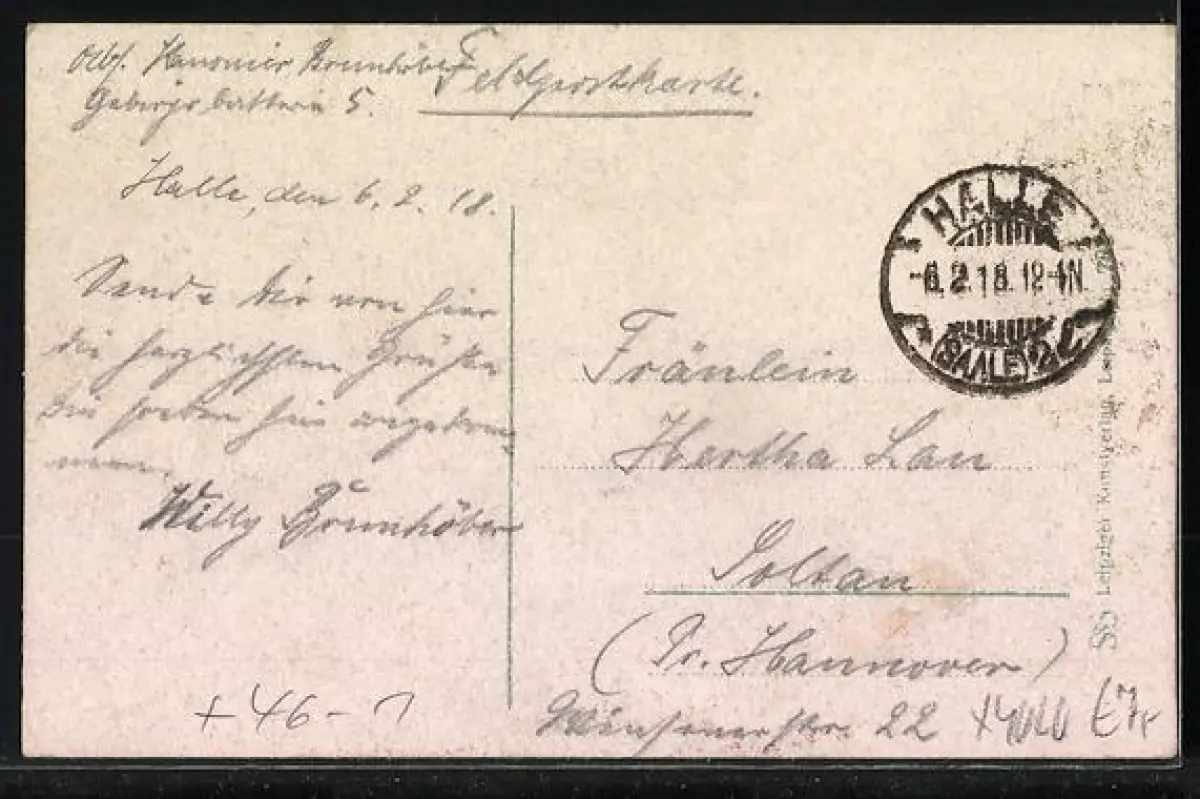 Abs. Kanonier Brunhöber
Gebirgsbatterie 5.
Feldpostkarte.
Halle, den 6. 2. 18.
Sende dir von hier
die herzlichsten Grüße
Bin soeben hier angekom-
men.
Willy Brunhöber
HALLE
-6.2.18.12-1N.
(SAALE) 2
Fräulein
Hertha Lau
Soltau
(Pr. Hannover)
str. 22
Leipziger Kunstverlag,
+ 46 -